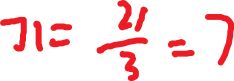 = 21/3 = 7